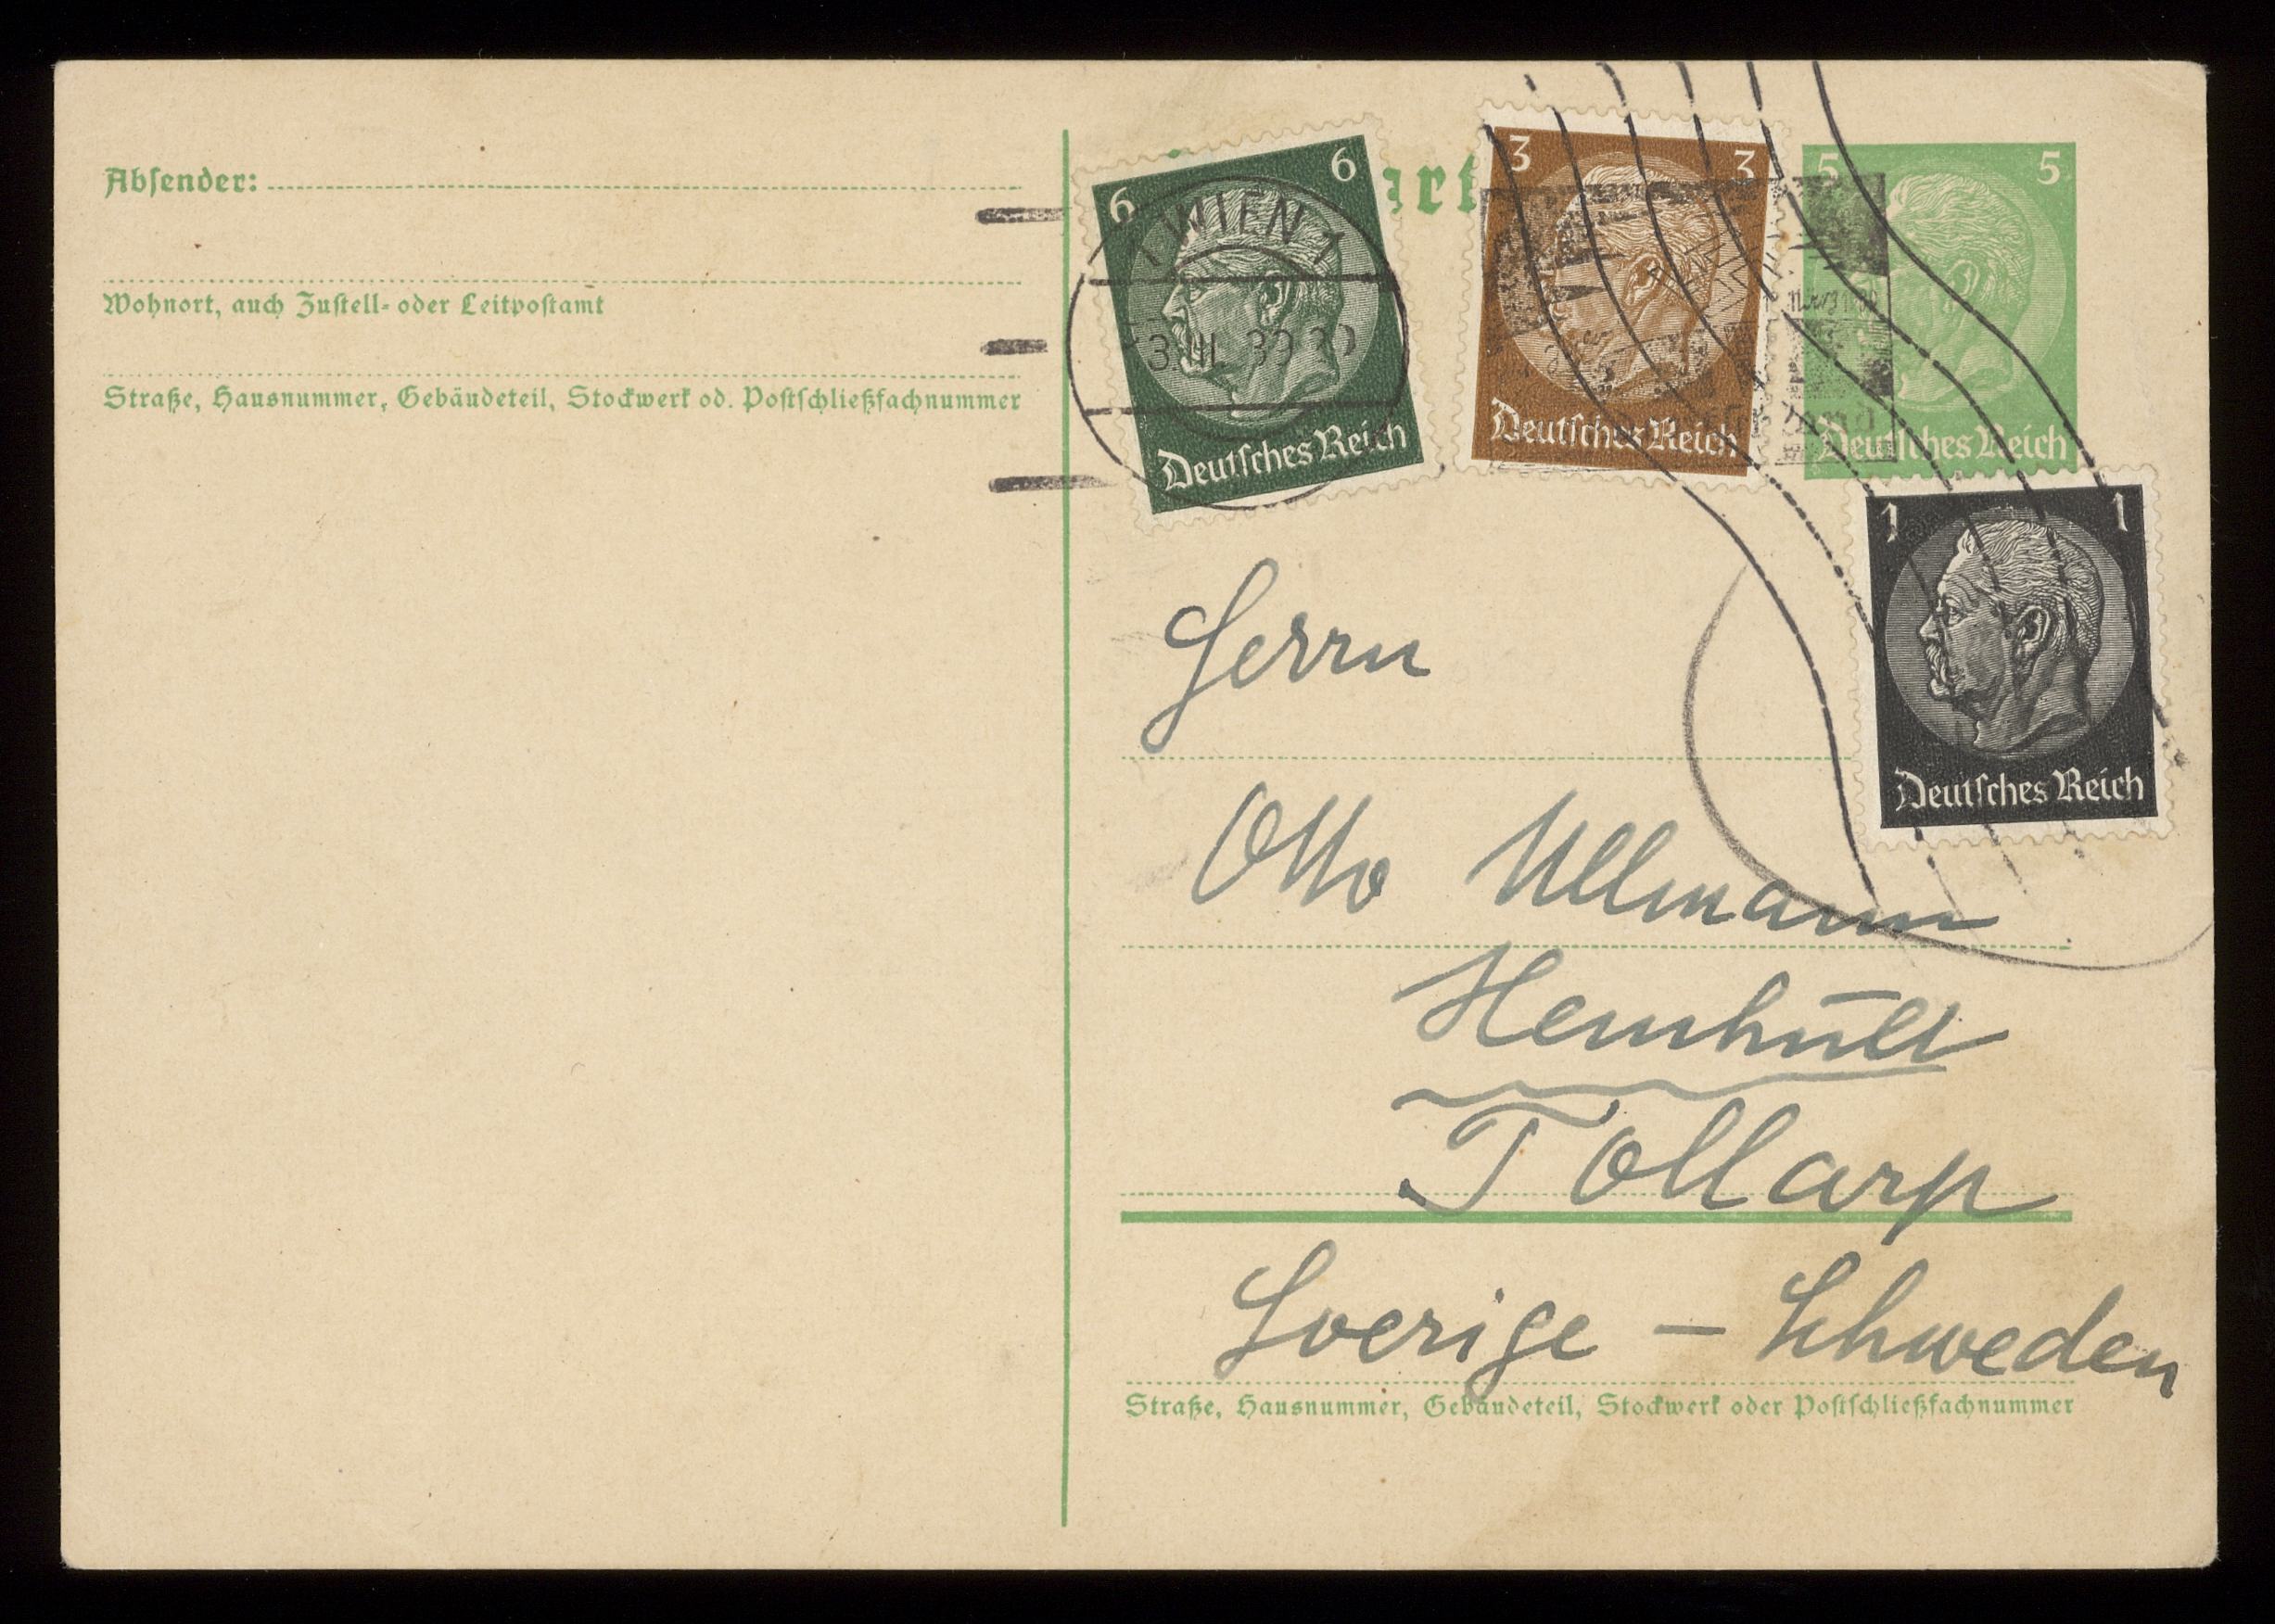 Absender:
Wohnort, auch Zustell- oder Leitpostamt
Straße, Hausnummer, Gebäudeteil, Stockwerk od. Postschließfachnummer
6 6
WIEN 1
3.III.39
Deutsches Reich
art
3 3
Deutsches Reich
5 5
Deutsches Reich
1 1
Deutsches Reich
Herrn
Otto Ullmann
Hemhult
Tollarp
Sverige – Schweden
Straße, Hausnummer, Gebäudeteil, Stockwerk oder Postschließfachnummer